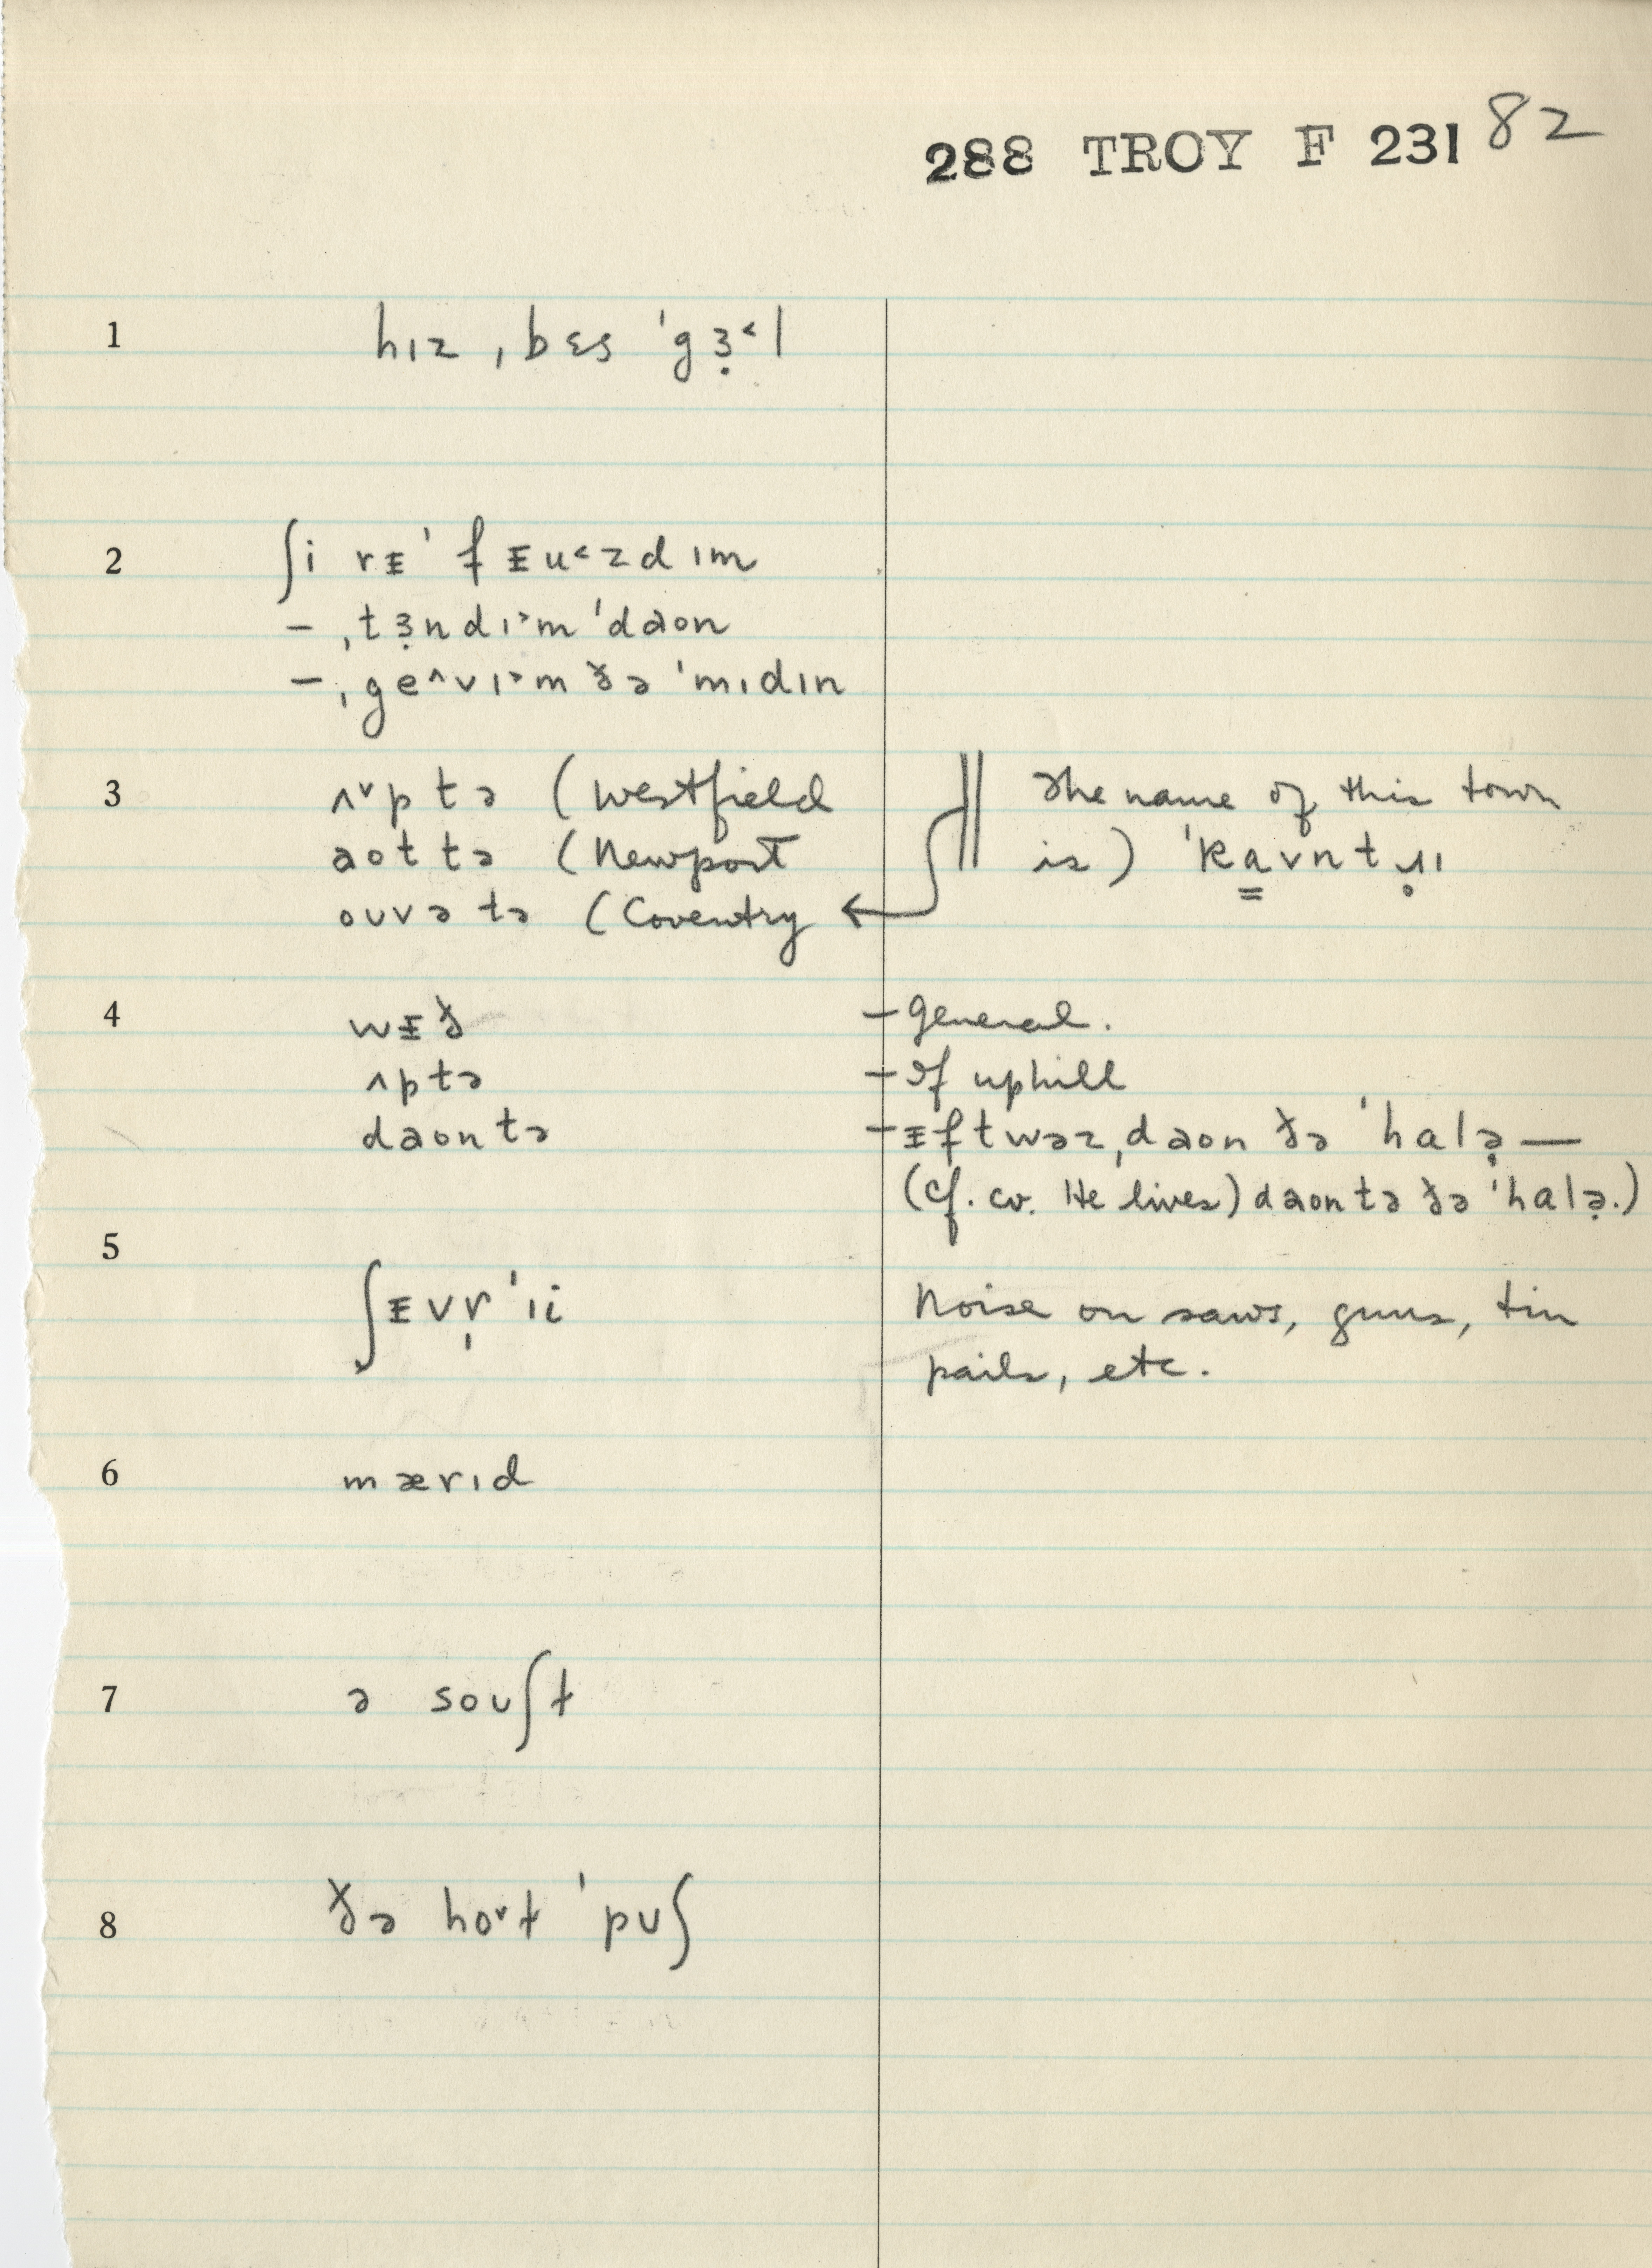 288 TROY F 231 82
1 hɪz ˌbɛs ˈgɜ̣˂l
2 ʃi rᵻˈfᵻu˂zd ɪm
– ˌtɜ̣nd ɪ˃m ˈdaon
– ˌge˄v ɪ˃m ðə ˈmɪdɪn
3 ʌ˅p tə (Westfield
aot tə (Newport
ouvə tə (Coventry
‖ The name of this town
is) ˈkɑ̳vntɹ̣ɪ
4 wᵻð – general.
ʌp tə – If uphill
daon tə – ᵻf t wəz ˌdaon ðə ˈhalə̣ —
(cf. cv. He lives) daon tə ðə ˈhalə̣.)
5 ʃᵻvr̩ˈɪi Noise on saws, guns, tin
pails, etc.
6 mærɪd
7 ə souʃt
8 ðə ho˅t ˈpʊʃ